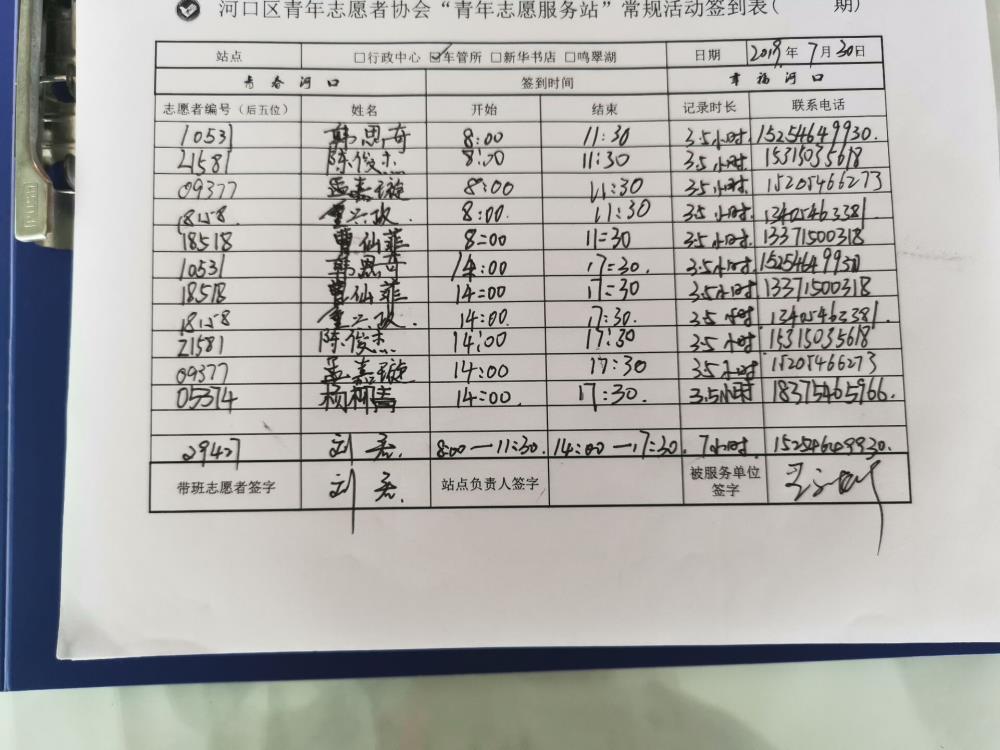 河口区青年志愿者协会“青年志愿服务站”常规活动签到表( 期)
站点 □行政中心 ☑车管所 □新华书店 □鸣翠湖 日期 2019年7月30日
青春河口 签到时间 幸福河口
志愿者编号(后五位) 姓名 开始 结束 记录时长 联系电话
10531 韩思奇 8:00 11:30 3.5小时 15254649930.
21581 陈俊杰 8:00 11:30 3.5小时 15315035618
09377 孟嘉璇 8:00 11:30 3.5小时 15205466273
18158 8:00. 11:30 3.5小时. 13405463381
18518 曹仙菲 8:00 11:30 3.5小时. 13371500318
10531 韩思奇 14:00 17:30. 3.5小时 15254649930
18518 曹仙菲 14:00 17:30 3.5小时 13371500318
18158 14:00. 17:30. 3.5小时. 13405463381.
21581 陈俊杰 14:00 17:30 3.5小时 15315035618
09377 孟嘉璇 14:00 17:30 3.5小时 15205466273
05374 14:00. 17:30. 3.5小时 18375465966.
29427 刘君 8:00—11:30. 14:00—17:30. 7小时. 15254649930.
带班志愿者签字 刘君. 站点负责人签字 被服务单位签字